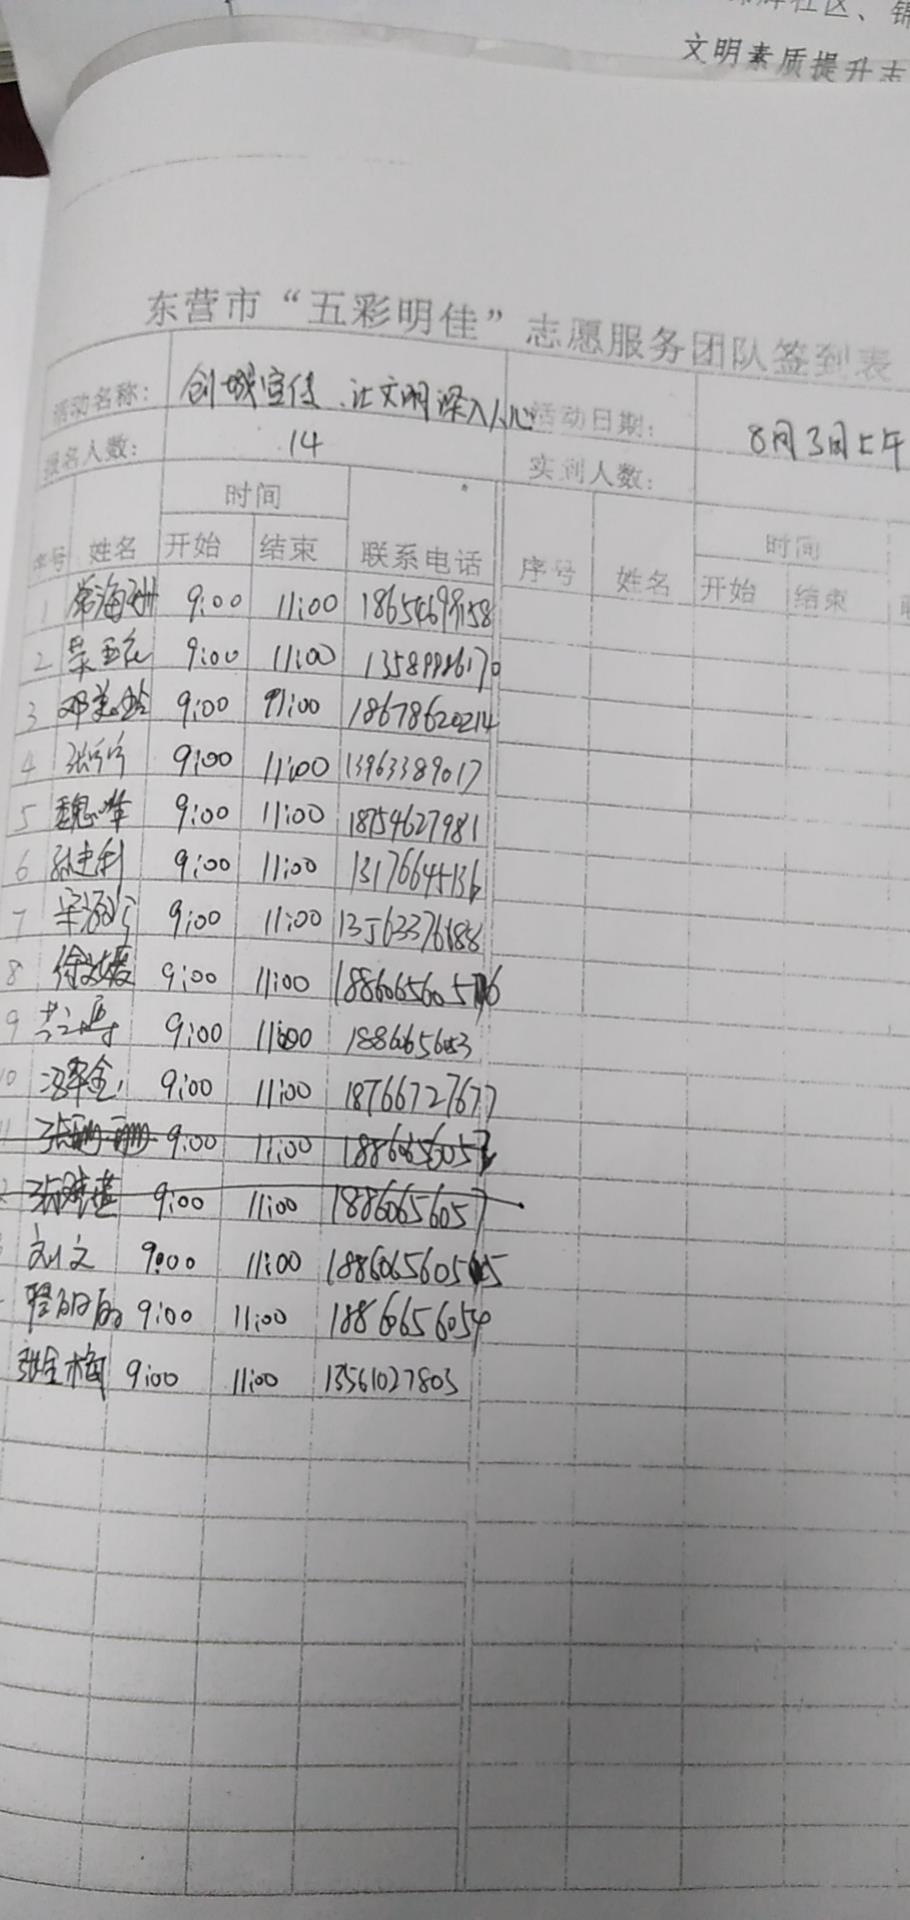 文明素质提升志
东营市“五彩明佳”志愿服务团队签到表
活动名称： 创城宣传、让文明深入人心 活动日期： 8月3日上午
报名人数： 14 实到人数：
时间 时间
序号 姓名 开始 结束 联系电话 序号 姓名 开始 结束
1 常海 9:00 11:00 18654699158
2 9:00 11:00 13589986170
3 邓美玲 9:00 11:00 18678620214
4 张宁宁 9:00 11:00 13963389017
5 魏 9:00 11:00 18754627981
6 孙建利 9:00 11:00 13176645136
7 9:00 11:00
8 徐 媛 9:00 11:00
9 9:00 11:00
10 9:00 11:00 18766727677
11 9:00 11:00
张 9:00 11:00 18860656057
刘文 9:00 11:00
9:00 11:00 18860656054
张金梅 9:00 11:00 13561027803